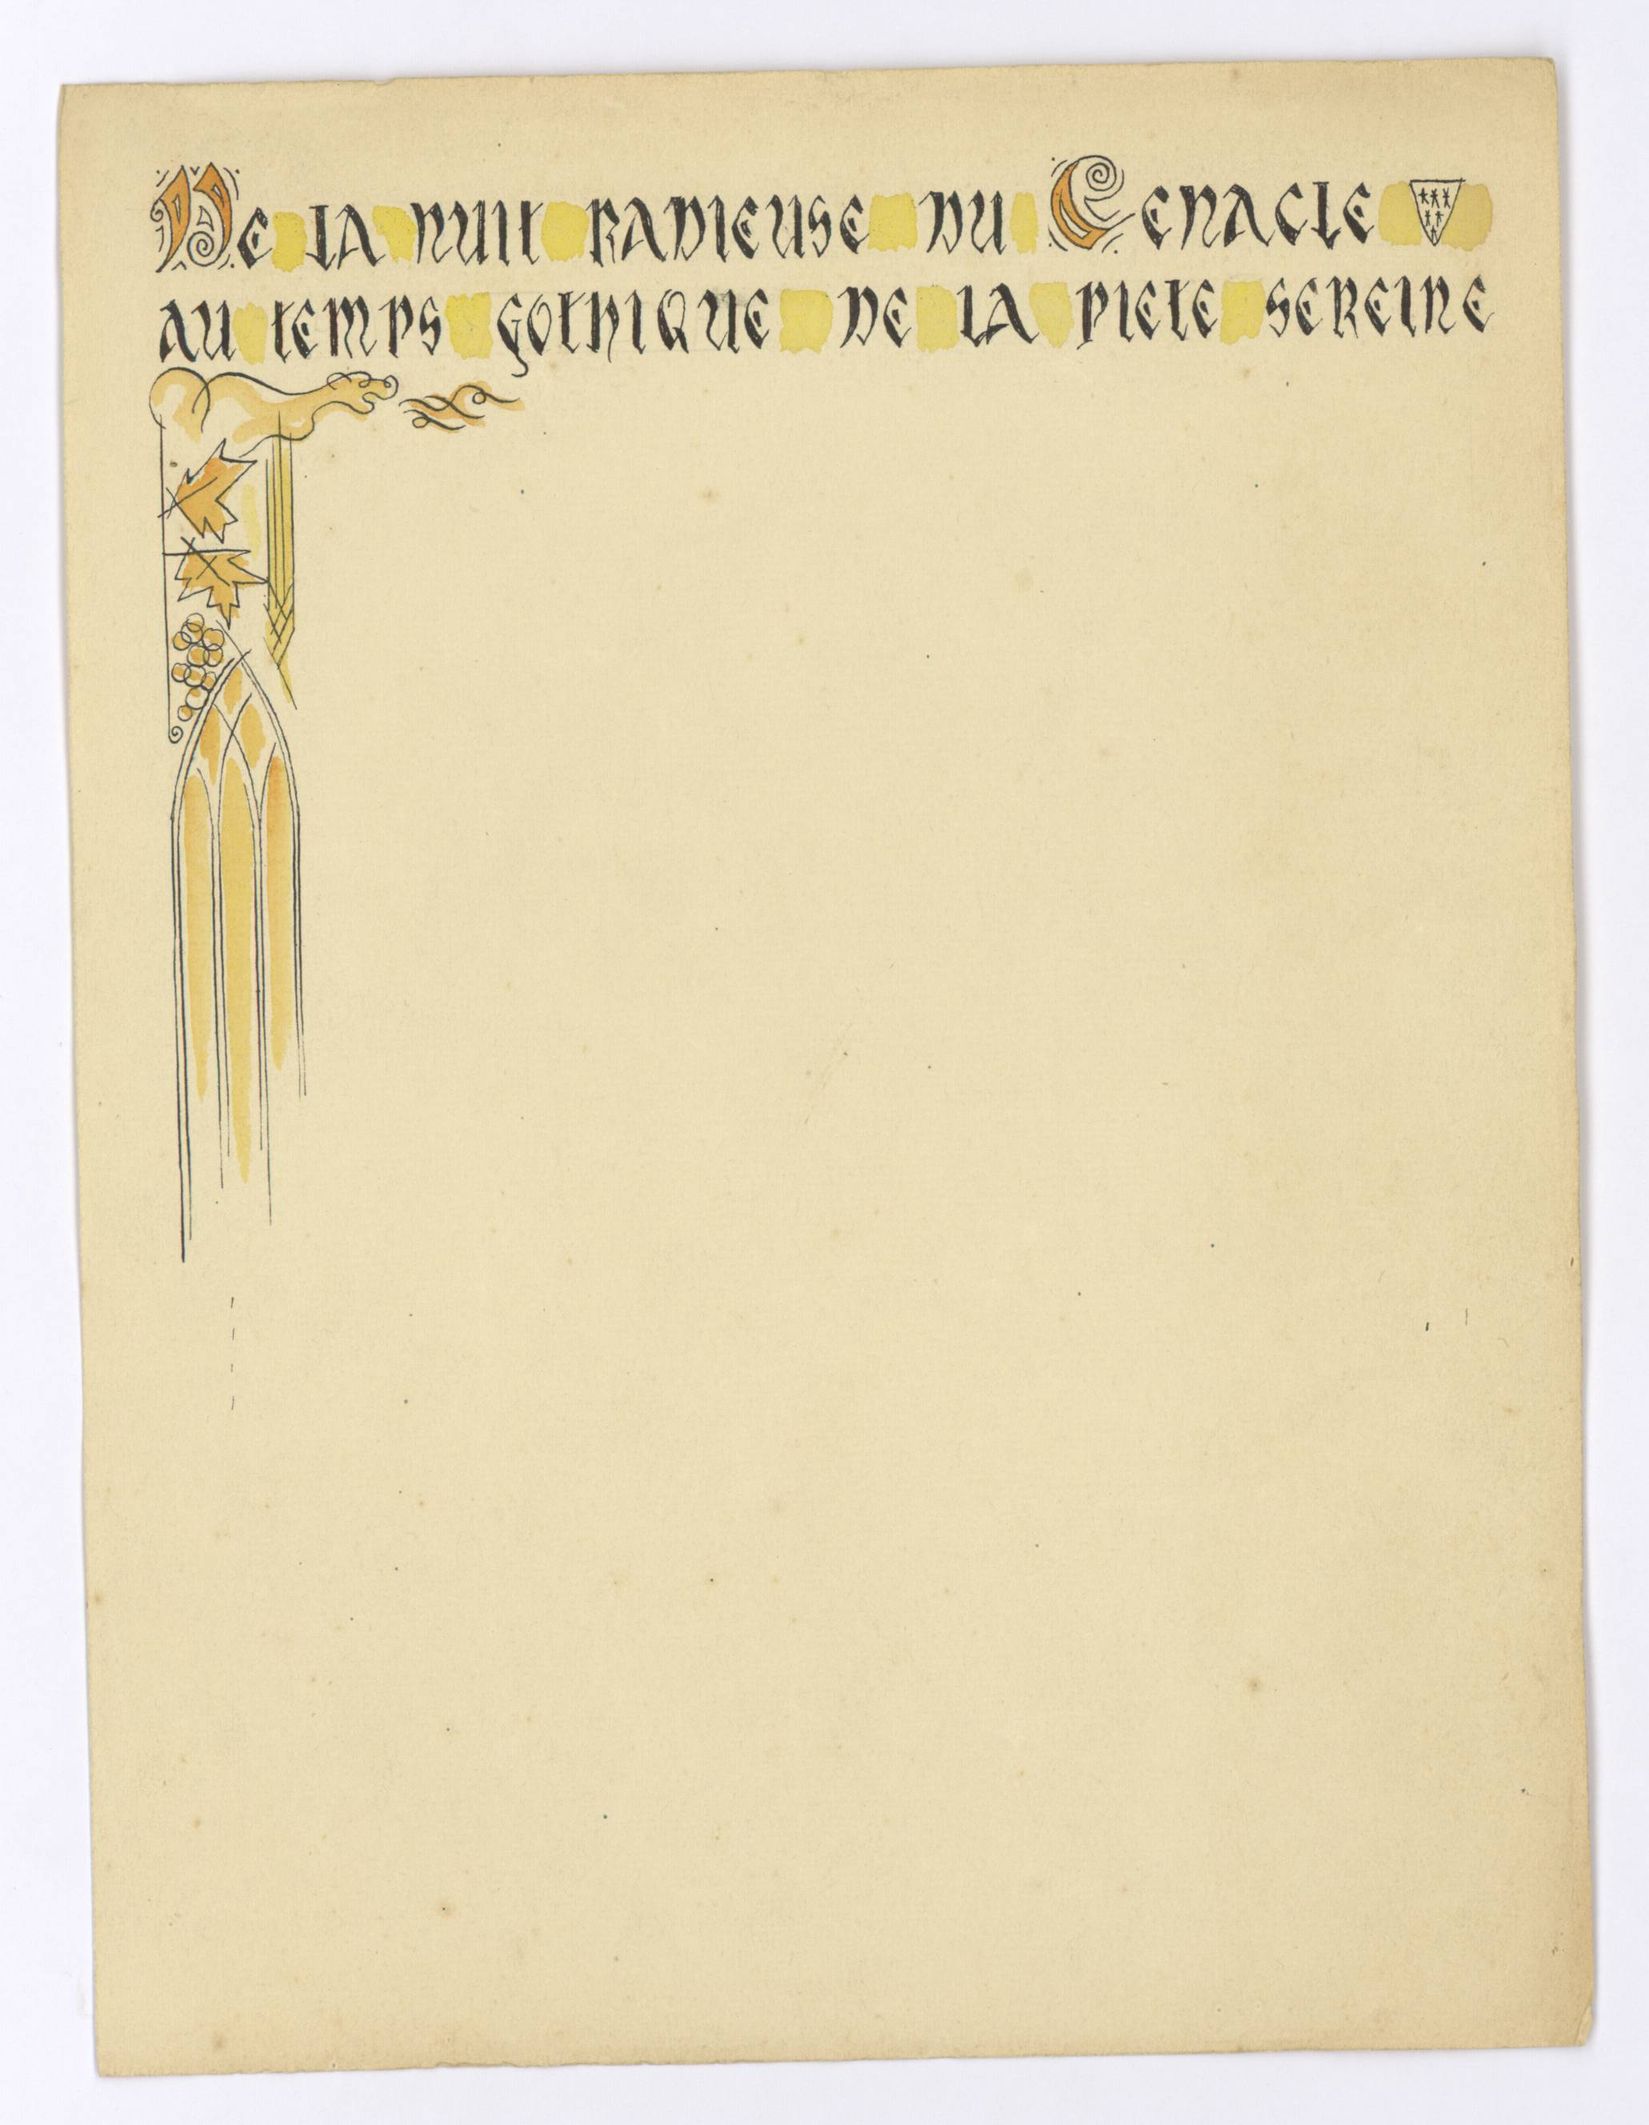 De la nuit radieuse du Cenacle
au temps gothique de la piete sereine